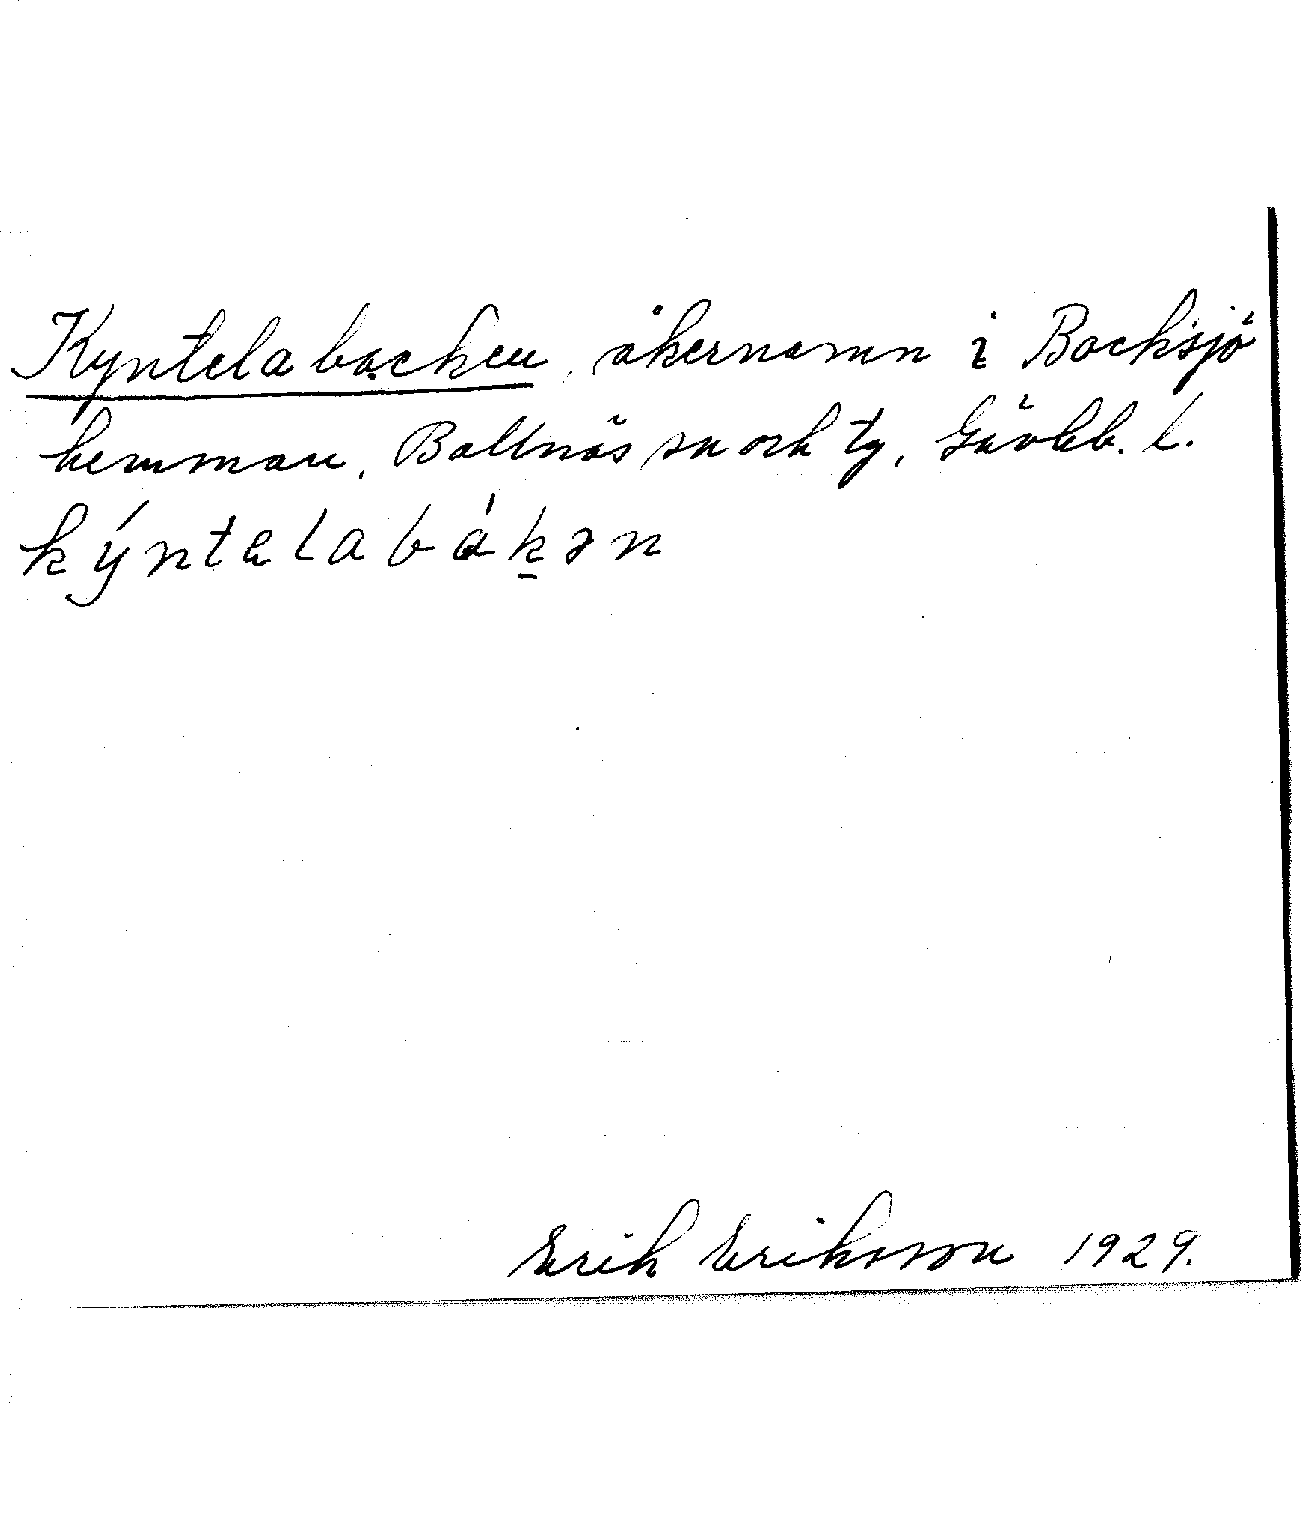 Kyntelabacken, åkernamn i Backsjö
hemman, Bollnäs sn och tg, Gävleb. l.
kýntelabákən
Erik Eriksson 1929.